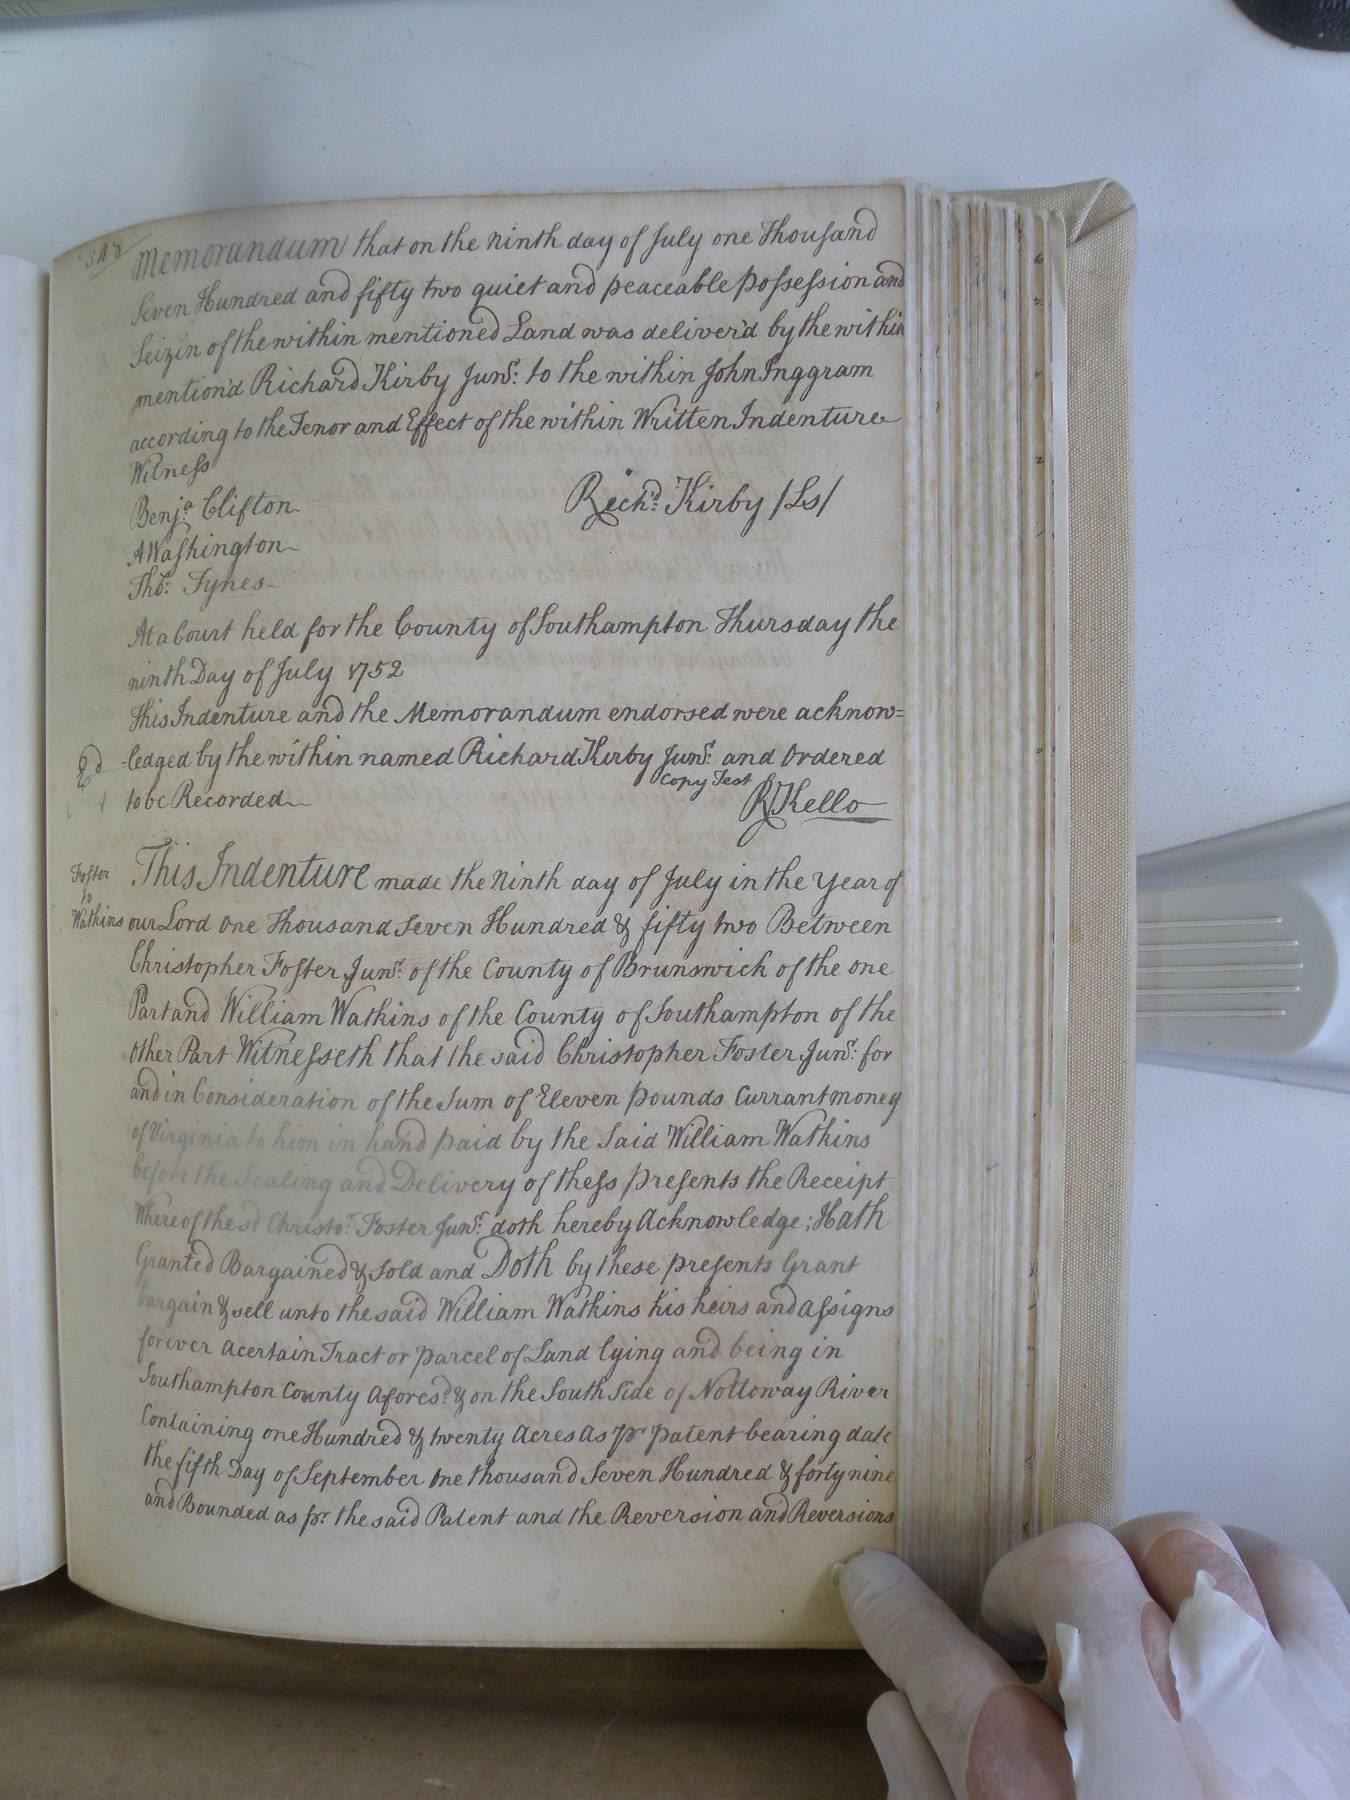 348
Memorandum that on the Ninth day of July one Thousand
Seven Hundred and fifty two quiet and peaceable Possession and
Seizin of the within mentioned Land was deliver'd by the within
mention'd Richard Kirby Junr. to the within John Inggram
according to the Tenor and Effect of the within Written Indenture
Witness
Benja. Clifton Richd. Kirby /Ls/
A Washington
Thos. Fynes
At a Court held for the County of Southampton Thursday the
ninth Day of July 1752
This Indenture and the Memorandum endorsed were acknow=
Ed -ledged by the within named Richard Kirby Junr. and Ordered
to be Recorded Copy Test
R Kello
Foster
to
Watkins
This Indenture made the Ninth day of July in the Year of
our Lord One Thousand Seven Hundred & fifty two Between
Christopher Foster Junr. of the County of Brunswick of the one
Part and William Watkins of the County of Southampton of the
Other Part Witnesseth that the said Christopher Foster Junr. for
and in Consideration of the Sum of Eleven pounds Currant money
of Virginia to him in hand paid by the Said William Watkins
before the Sealing and Delivery of thess presents the Receipt
Whereof the sd. Christor. Foster Junr. doth hereby Acknowledge; Hath
Granted Bargained & Sold and Doth by these presents Grant
bargain & sell unto the said William Watkins his heirs and assigns
forever a certain Tract or parcel of Land lying and being in
Southampton County Aforesd. & on the South Side of Nottoway River
Containing one Hundred & twenty Acres As pr patent bearing date
the fifth Day of September One thousand Seven Hundred & forty nine
and Bounded as pr. the said Patent and the Reversion and Reversions